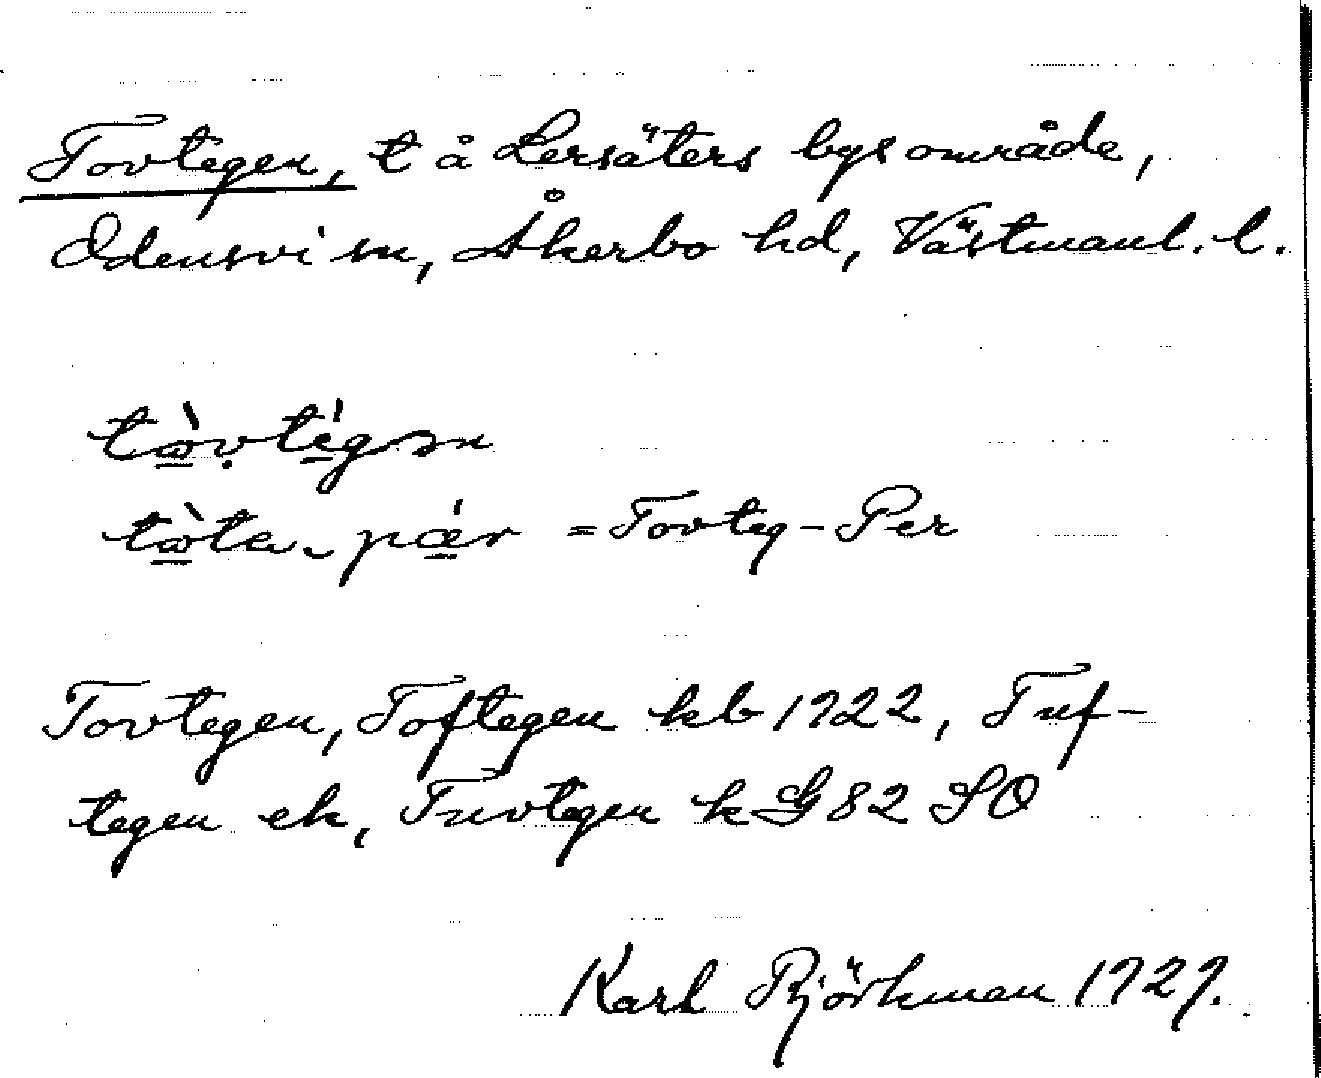 Tovtegen, t å Lersäters bys område,
Odensvi sn, Åkerbo hd, Västmanl. l.
= Tovteg-Per
Tovtegen, Toftegen kb 1922, Tuf-
tegen ek, Tuvtegen k G 82 SO
Karl Björkman 1929.